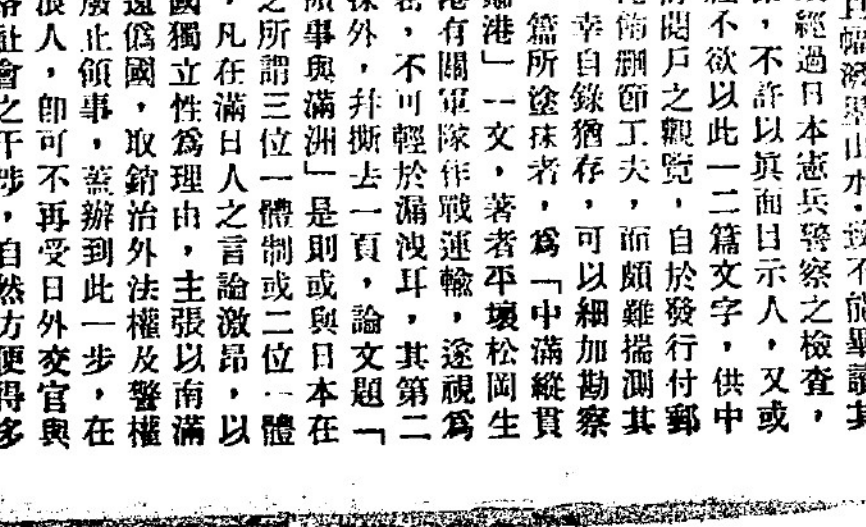 且幅深墨山水，遂不能畢讀其
經過日本憲兵警察之檢查，
，不許以眞面目示人，又或
不欲以此一二篇文字，供中
閱戶之觀覽，自於發行付郵
飾刪節工夫，而頗難揣測其
幸自錄猶存，可以細加勘察
篇所塗抹者，爲「中滿縱貫
港」一文，著者平壤松岡生
港有關軍隊作戰運輸，遂視爲
密，不可輕於漏洩耳，其第二
抹外，幷撕去一頁，論文題「
領事與滿洲」是則或與日本在
之所謂三位一體制或二位一體
，凡在滿日人之言論激昂，以
國獨立性爲理由，主張以南滿
還僞國，取銷治外法權及警權
廢止領事，蓋辦到此一步，在
浪人，卽可不再受日外交官與
社會之干涉，自然方便得多